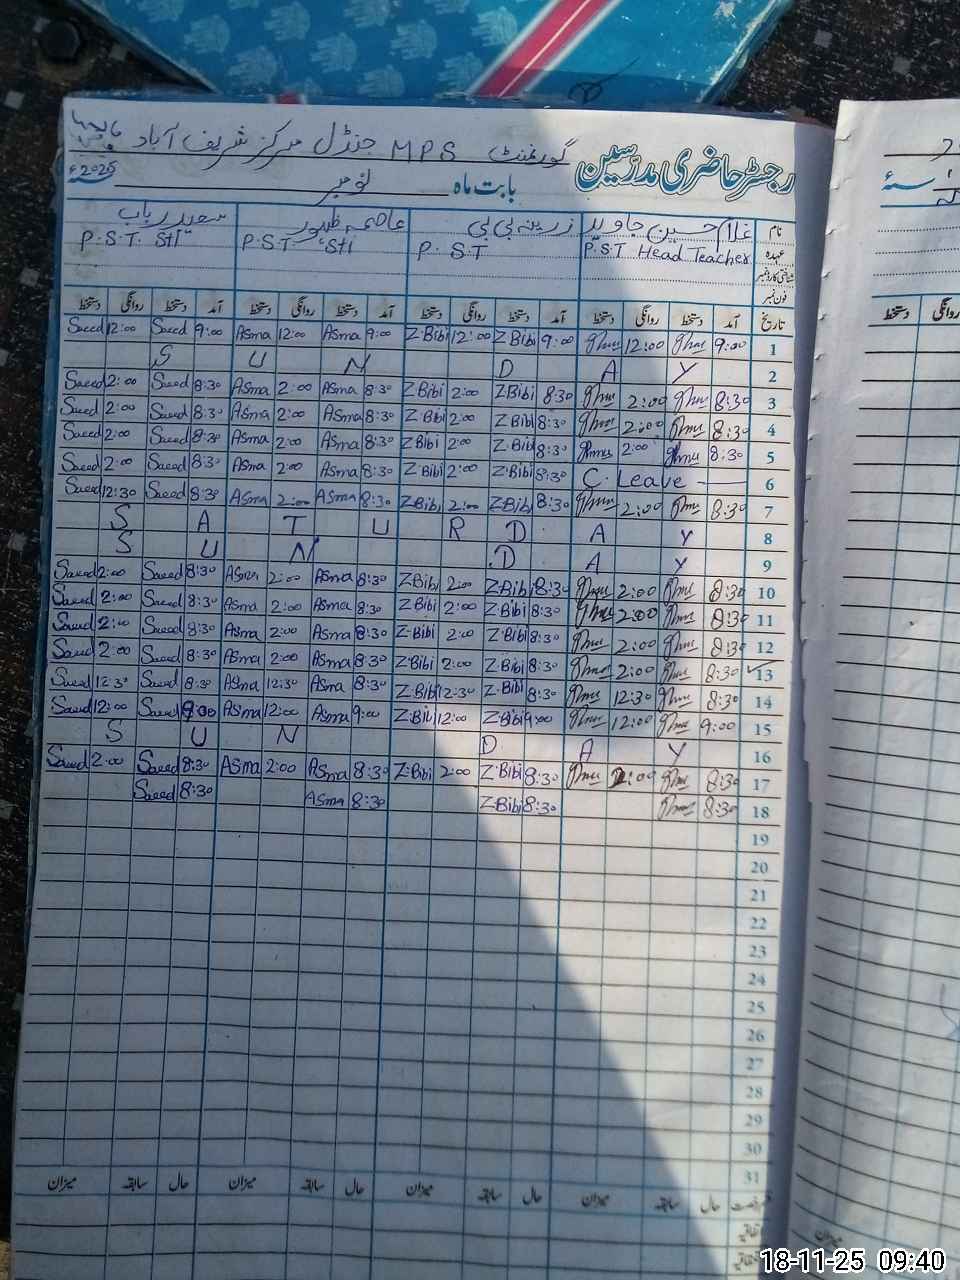 گورنمنٹ MPS جنڈل مرکز شریف آباد
رجسٹر حاضری مدرسین بابت ماہ نومبر 2025ء
نام غلام حسین جاوید زرینہ بی بی عاصمہ ظہور سعید رباب
عہدہ P.S.T Head Teacher P.S.T P.S.T STI P.S.T. STI
شناختی کارڈ نمبر
فون نمبر
تاریخ آمد دستخط روانگی دستخط آمد دستخط روانگی دستخط آمد دستخط روانگی دستخط آمد دستخط روانگی دستخط
Saeed 12:00 Saeed 9:00 Asma 12:00 Asma 9:00 Z·Bibi 12:00 Z·Bibi 9:00 12:00 9:00 1
S U N D A Y 2
Saeed 2:00 Saeed 8:30 Asma 2:00 Asma 8:30 Z·Bibi 2:00 Z·Bibi 8:30 2:00 8:30 3
Saeed 2:00 Saeed 8:30 Asma 2:00 Asma 8:30 Z·Bibi 2:00 Z·Bibi 8:30 2:00 8:30 4
Saeed 2:00 Saeed 8:30 Asma 2:00 Asma 8:30 Z·Bibi 2:00 Z·Bibi 8:30 2:00 8:30 5
Saeed 2:00 Saeed 8:30 Asma 2:00 Asma 8:30 Z·Bibi 2:00 Z·Bibi 8:30 C. Leave 6
Saeed 12:30 Saeed 8:30 Asma 2:00 Asma 8:30 Z·Bibi 2:00 Z·Bibi 8:30 2:00 8:30 7
S A T U R D A Y 8
S U N D A Y 9
Saeed 2:00 Saeed 8:30 Asma 2:00 Asma 8:30 Z·Bibi 2:00 Z·Bibi 8:30 2:00 8:30 10
Saeed 2:00 Saeed 8:30 Asma 2:00 Asma 8:30 Z·Bibi 2:00 Z·Bibi 8:30 2:00 8:30 11
Saeed 2:00 Saeed 8:30 Asma 2:00 Asma 8:30 Z·Bibi 2:00 Z·Bibi 8:30 2:00 8:30 12
Saeed 2:00 Saeed 8:30 Asma 2:00 Asma 8:30 Z·Bibi 2:00 Z·Bibi 8:30 2:00 8:30 13
Saeed 12:30 Saeed 8:30 Asma 12:30 Asma 8:30 Z·Bibi 12:30 Z·Bibi 8:30 12:30 8:30 14
Saeed 12:00 Saeed 9:00 Asma 12:00 Asma 9:00 Z·Bibi 12:00 Z·Bibi 9:00 12:00 9:00 15
S U N D A Y 16
Saeed 2:00 Saeed 8:30 Asma 2:00 Asma 8:30 Z·Bibi 2:00 Z·Bibi 8:30 2:00 8:30 17
Saeed 8:30 Asma 8:30 Z·Bibi 8:30 8:30 18
19
20
21
22
23
24
25
26
27
28
29
30
31
حال سابقہ میزان حال سابقہ میزان حال سابقہ میزان حال سابقہ میزان
18-11-25 09:40